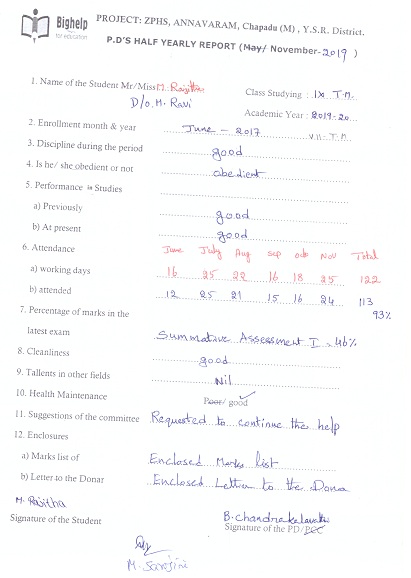 Bighelp
for education
PROJECT: ZPHS, ANNAVARAM, Chapadu (M) , Y.S.R. District.
P.D'S HALF YEARLY REPORT (May/ November-2019 )
1. Name of the Student Mr/Miss M. Rajitha
D/o. M. Ravi
Class Studying : IX T.M.
Academic Year : 2019-20...
2. Enrollment month & year June - 2017 VII - T.M.
3. Discipline during the period good
4. Is he/ she obedient or not obedient
5. Performance in Studies
a) Previously good
b) At present good
6. Attendance June July Aug sep octo Nov Total
a) working days 16 25 22 16 18 25 122
b) attended 12 25 21 15 16 24 113
93%
7. Percentage of marks in the
latest exam Summative Assessment I - 46%
8. Cleanliness good
9. Tallents in other fields Nil
10. Health Maintenance Poor/ good ✓
11. Suggestions of the committee Requested to continue the help
12. Enclosures
a) Marks list of Enclosed Marks list
b) Letter to the Donar Enclosed Letter to the Dona
M. Rajitha
Signature of the Student
B. Chandrakalavathi
Signature of the PD/PCC
M. Sarojini